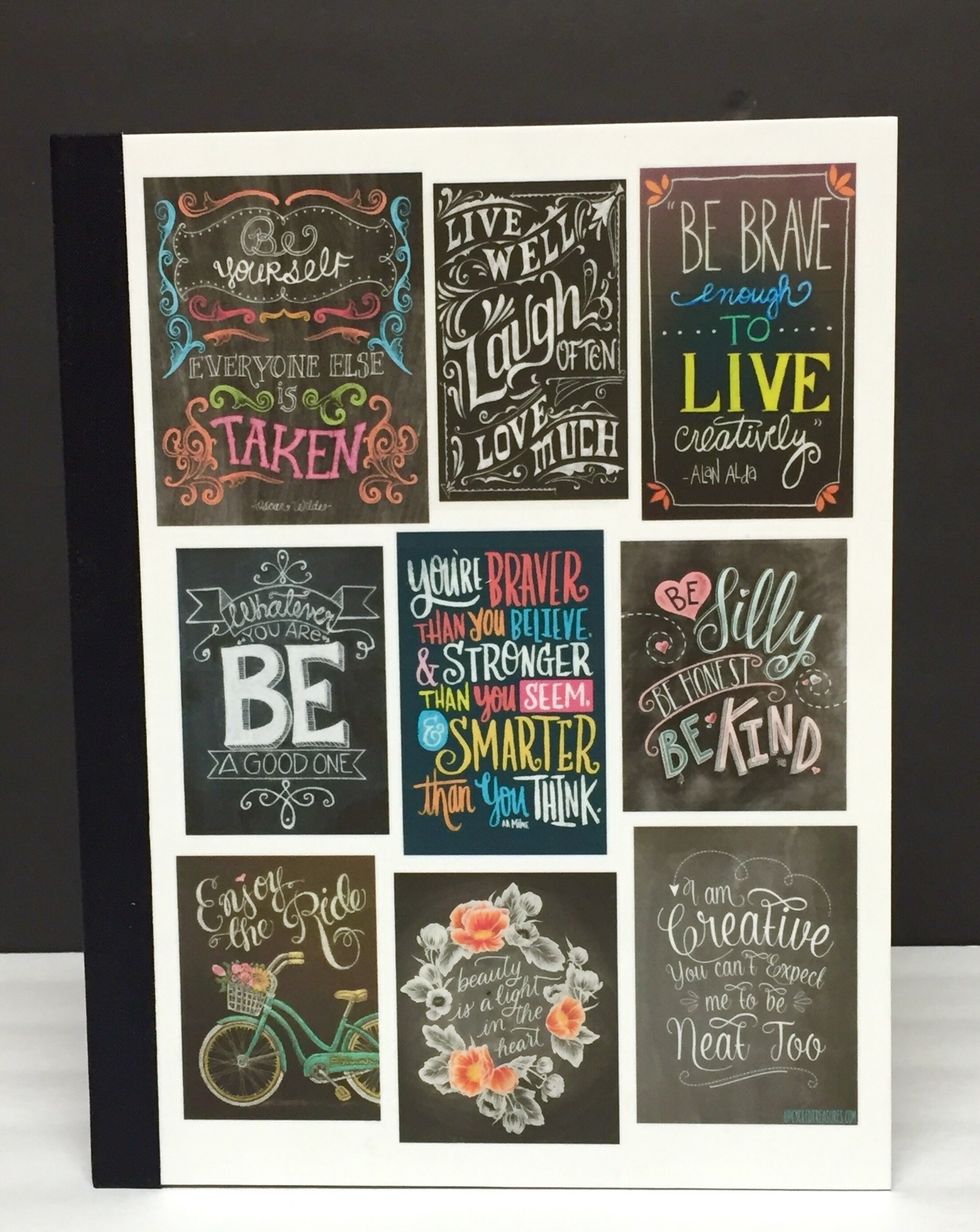 Be
yourself
EVERYONE ELSE
is
TAKEN
-Oscar Wilde-
LIVE
WELL
Laugh
OFTEN
LOVE
MUCH
"BE BRAVE
enough
TO
LIVE
creatively"
-ALAN ALDA
Whatever
YOU ARE
BE
A GOOD ONE
YOU'RE BRAVER
THAN YOU BELIEVE,
& STRONGER
THAN YOU SEEM,
& SMARTER
than you THINK.
AA MILNE
BE Silly
BE HONEST
BE KIND
Enjoy
the Ride
beauty
is a light
in the
heart
I am
Creative
You can't Expect
me to be
Neat Too
UPCYCLEDTREASURES.COM